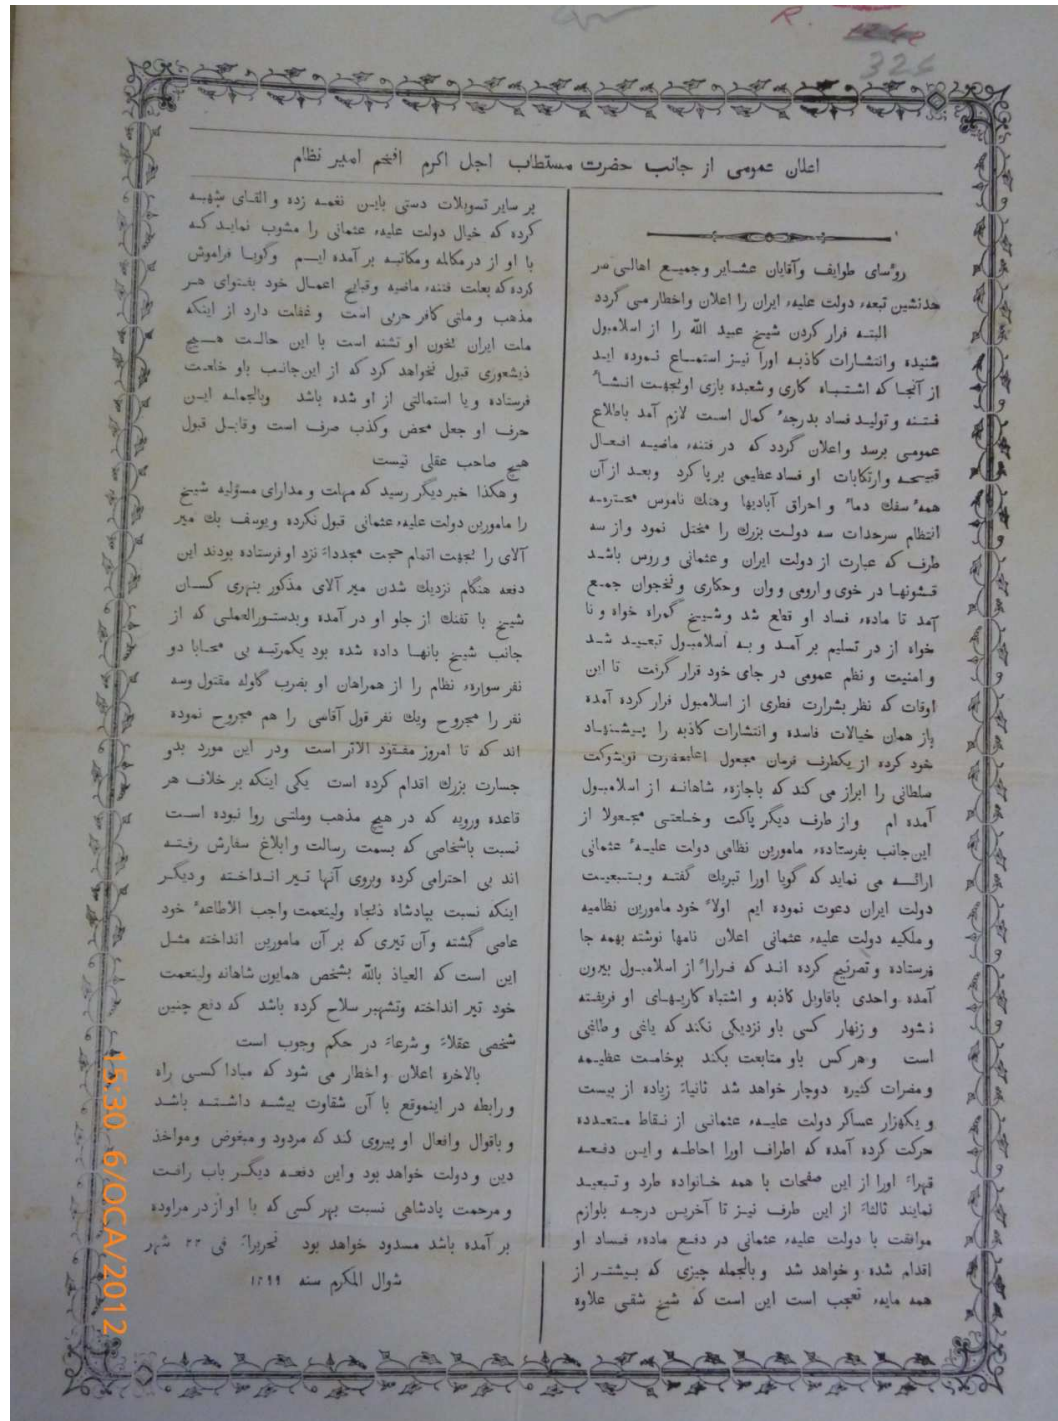 324
اعلان عمومی از جانب حضرت مستطاب اجل اکرم افخم امیر نظام
رؤسای طوایف وآقایان عشایر وجمیع اهالی سر
حدنشین تبعهء دولت علیهء ایران را اعلان واخطار می گردد
البته فرار کردن شیخ عبید الله را از اسلامبول
شنیده وانتشارات کاذبه اورا نیز استماع نموده اید
از آنجا که اشتباه کاری وشعبده بازی اوبجهت انشاء
فتنه وتولید فساد بدرجهٔ کمال است لازم آمد باطلاع
عمومی برسد واعلان گردد که در فتنهء ماضیه افعال
قبیحه وارتکابات او فساد عظیمی برپا کرد وبعد از آن
همهٔ سفك دماء و احراق آبادیها وهتك ناموس محترمه
انتظام سرحدات سه دولت بزرك را مختل نمود واز سه
طرف که عبارت از دولت ایران وعثمانی وروس باشد
قشونها در خوی وارومی ووان وحکاری ونخجوان جمع
آمد تا مادهء فساد او قطع شد وشیخ گمراه خواه و نا
خواه از در تسلیم بر آمد وبه اسلامبول تبعید شد
وامنیت ونظم عمومی در جای خود قرار گرفت تا این
اوقات که نظر بشرارت فطری از اسلامبول فرار کرده آمده
باز همان خیالات فاسده وانتشارات کاذبه را پیشنهاد
خود کرده از یکطرف فرمان مجعول اعلیحضرت قویشوکت
سلطانی را ابراز می کند که باجازهء شاهانه از اسلامبول
آمده ام واز طرف دیگر پاکت وخلعتی مجعولا از
این‌جانب بفرستادهء مامورین نظامی دولت علیهٔ عثمانی
ارائه می نماید که گویا اورا تبریك گفته وبتبعیت
دولت ایران دعوت نموده ایم اولاً خود مامورین نظامیه
وملکیه دولت علیهء عثمانی اعلان نامها نوشته بهمه جا
فرستاده وتصریح کرده اند که فراراً از اسلامبول بیرون
آمده واحدی باقاویل کاذبه و اشتباه کاریهای او فریفته
نشود و زنهار کسی باو نزدیکی نکند که یاغی وطاغی
است وهر کس باو متابعت بکند بوخامت عظیمه
ومضرات کثیره دوچار خواهد شد ثانیاً زیاده از بیست
ویکهزار عساکر دولت علیهء عثمانی از نقاط متعدده
حرکت کرده آمده که اطراف اورا احاطه واین دفعه
قهراً اورا از این صفحات با همه خانواده طرد وتبعید
نمایند ثالثاً از این طرف نیز تا آخرین درجه بلوازم
موافقت با دولت علیهء عثمانی در دفع مادهء فساد او
اقدام شده وخواهد شد وبالجمله چیزی که بیشتر از
همه مایهء تعجب است این است که شیخ شقی علاوه
بر سایر تسویلات دستی باین نغمه زده والقای شبهه
کرده که خیال دولت علیهء عثمانی را مشوب نماید که
با او از در مکالمه ومکاتبه بر آمده ایم وگویا فراموش
کرده که بعلت فتنهء ماضیه وقبایح اعمال خود بفتوای هر
مذهب وملتی کافر حربی است وغفلت دارد از اینکه
ملت ایران بخون او تشنه است با این حالت هیچ
ذیشعوری قبول نخواهد کرد که از این‌جانب باو خلعت
فرستاده ویا استمالتی از او شده باشد وبالجمله این
حرف او جعل محض وکذب صرف است وقابل قبول
هیچ صاحب عقلی نیست
وهکذا خبر دیگر رسید که مهلت ومدارای مسؤلیه شیخ
را مامورین دولت علیهء عثمانی قبول نکرده ویوسف بك میر
آلای را بجهت اتمام حجت مجدداً نزد او فرستاده بودند این
دفعه هنگام نزدیك شدن میر آلای مذکور بنهری کسان
شیخ با تفنك از جلو او در آمده وبدستورالعملی که از
جانب شیخ بانها داده شده بود یکمرتبه بی محابا دو
نفر سوارهء نظام را از همراهان او بضرب گلوله مقتول وسه
نفر را مجروح ویك نفر قول آقاسی را هم مجروح نموده
اند که تا امروز مفقود الاثر است ودر این مورد بدو
جسارت بزرك اقدام کرده است یکی اینکه بر خلاف هر
قاعده ورویه که در هیچ مذهب وملتی روا نبوده است
نسبت باشخاصی که بسمت رسالت وابلاغ سفارش رفته
اند بی احترامی کرده وبروی آنها تیر انداخته ودیگر
اینکه نسبت بپادشاه ذیجاه ولینعمت واجب الاطاعهٔ خود
عاصی گشته وآن تیری که بر آن مامورین انداخته مثل
این است که العیاذ بالله بشخص همایون شاهانه ولینعمت
خود تیر انداخته وتشهیر سلاح کرده باشد که دفع چنین
شخصی عقلاً وشرعاً در حکم وجوب است
بالاخره اعلان واخطار می شود که مبادا کسی راه
ورابطه در اینموقع با آن شقاوت پیشه داشته باشد
وباقوال وافعال او پیروی کند که مردود ومبغوض ومواخذ
دین ودولت خواهد بود واین دفعه دیگر باب رافت
ومرحمت پادشاهی نسبت بهر کسی که با او از در مراوده
بر آمده باشد مسدود خواهد بود تحریراً فی ۲۲ شهر
شوال المکرم سنه ۱۲۹۹
15:30 6/OCA/2012